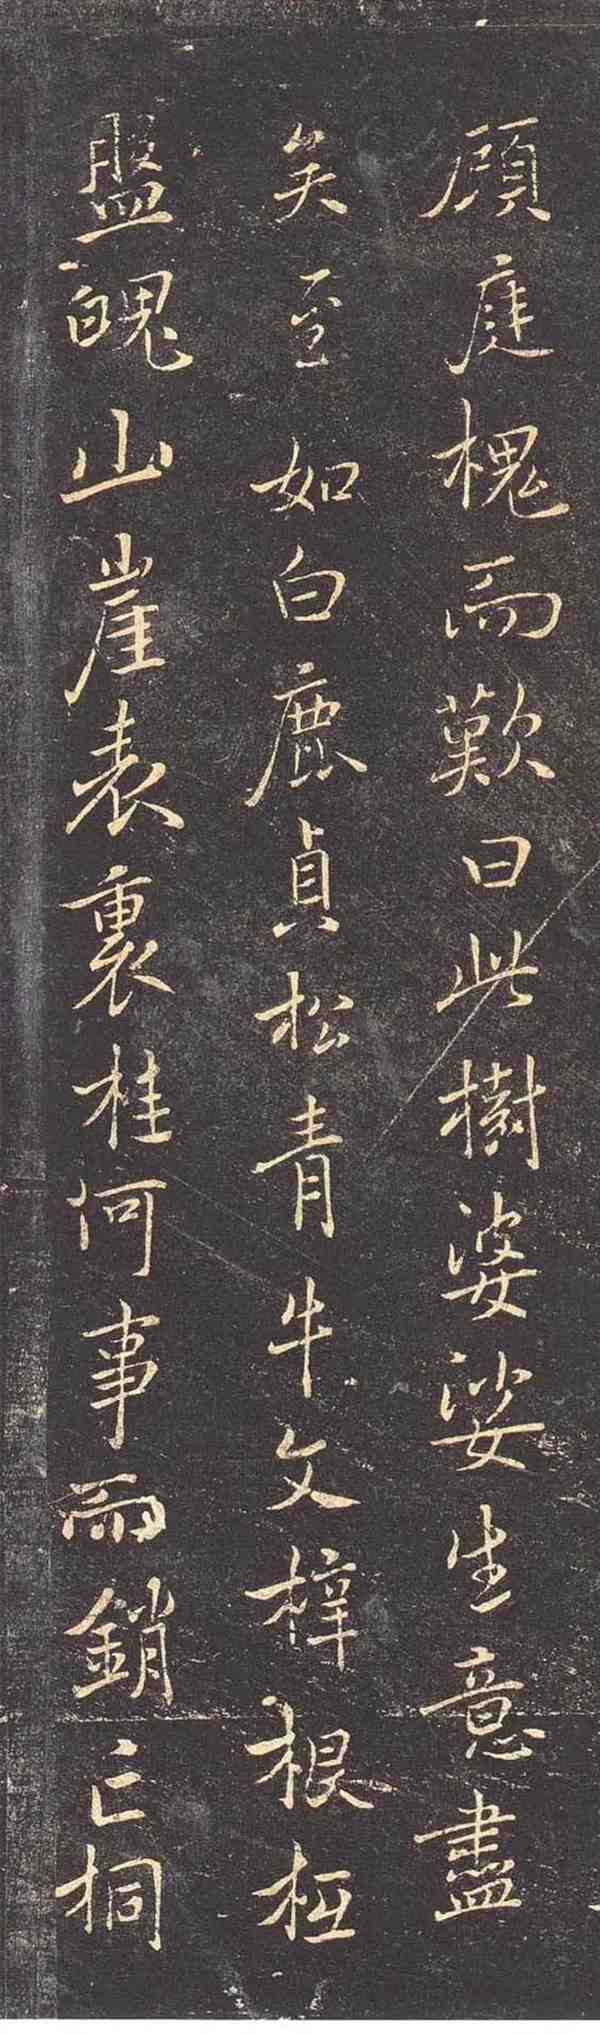 顧庭槐而歎曰此樹婆娑生意盡
矣至如白鹿貞松青牛文梓根柢
盤魄山崖表裏桂何事而銷亡桐